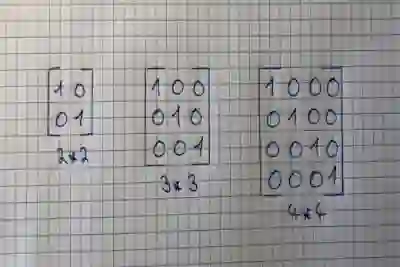 1 0
0 1
2x2
1 0 0
0 1 0
0 0 1
3x3
1 0 0 0
0 1 0 0
0 0 1 0
0 0 0 1
4x4